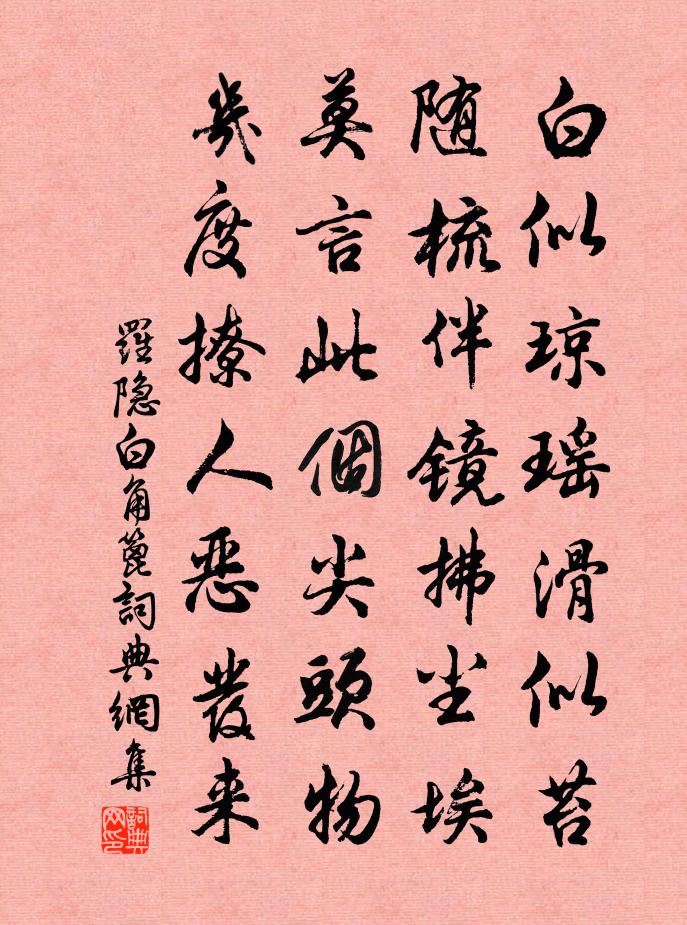 白似琼瑶滑似苔
随梳伴镜拂尘埃
莫言此個尖頭物
幾度撩人恶發来
羅隐白角篦詞典網集
詞典网印